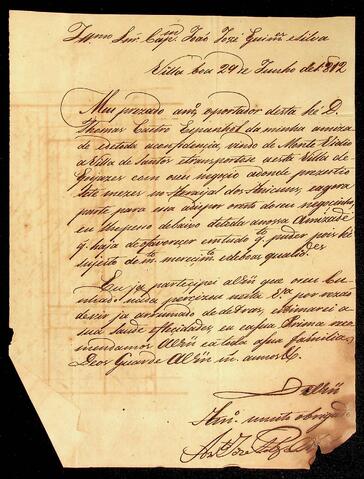 Illmo Snr Capm João José Guimes e Silva
Villa boa 24 de Junho de 1812
Meu prezado amo, o portador desta he D.
Thomas Castro Espanhol da minha amizade
de e de toda a confidencia, vindo de Monte Vidio
a Villa de Santos e transportese nesta Villa de
Goyazes com o seu negocio adonde prezentio
tete mezes no Arraijal dos e agora
parte para sua a dispor o resto do seu negocinho,
eu lhe peço debaixo de toda a nossa Amizade
q. haja de favorecer em tudo q. puder pois he
sujeito de mto. merecimto. e de boas qualides
Eu ja participei a VM que o seu Cu
nhado nada percizou nesta Ca por razão
de vir ja arrumado de de tras, estimarei a
sua saude e felicidades, eu e a sua Prima reco
mendamos a VM e a toda a sua familia
Deos Guarde a VM m. annos &
De VM
Amo. muito obrigado
Anto José